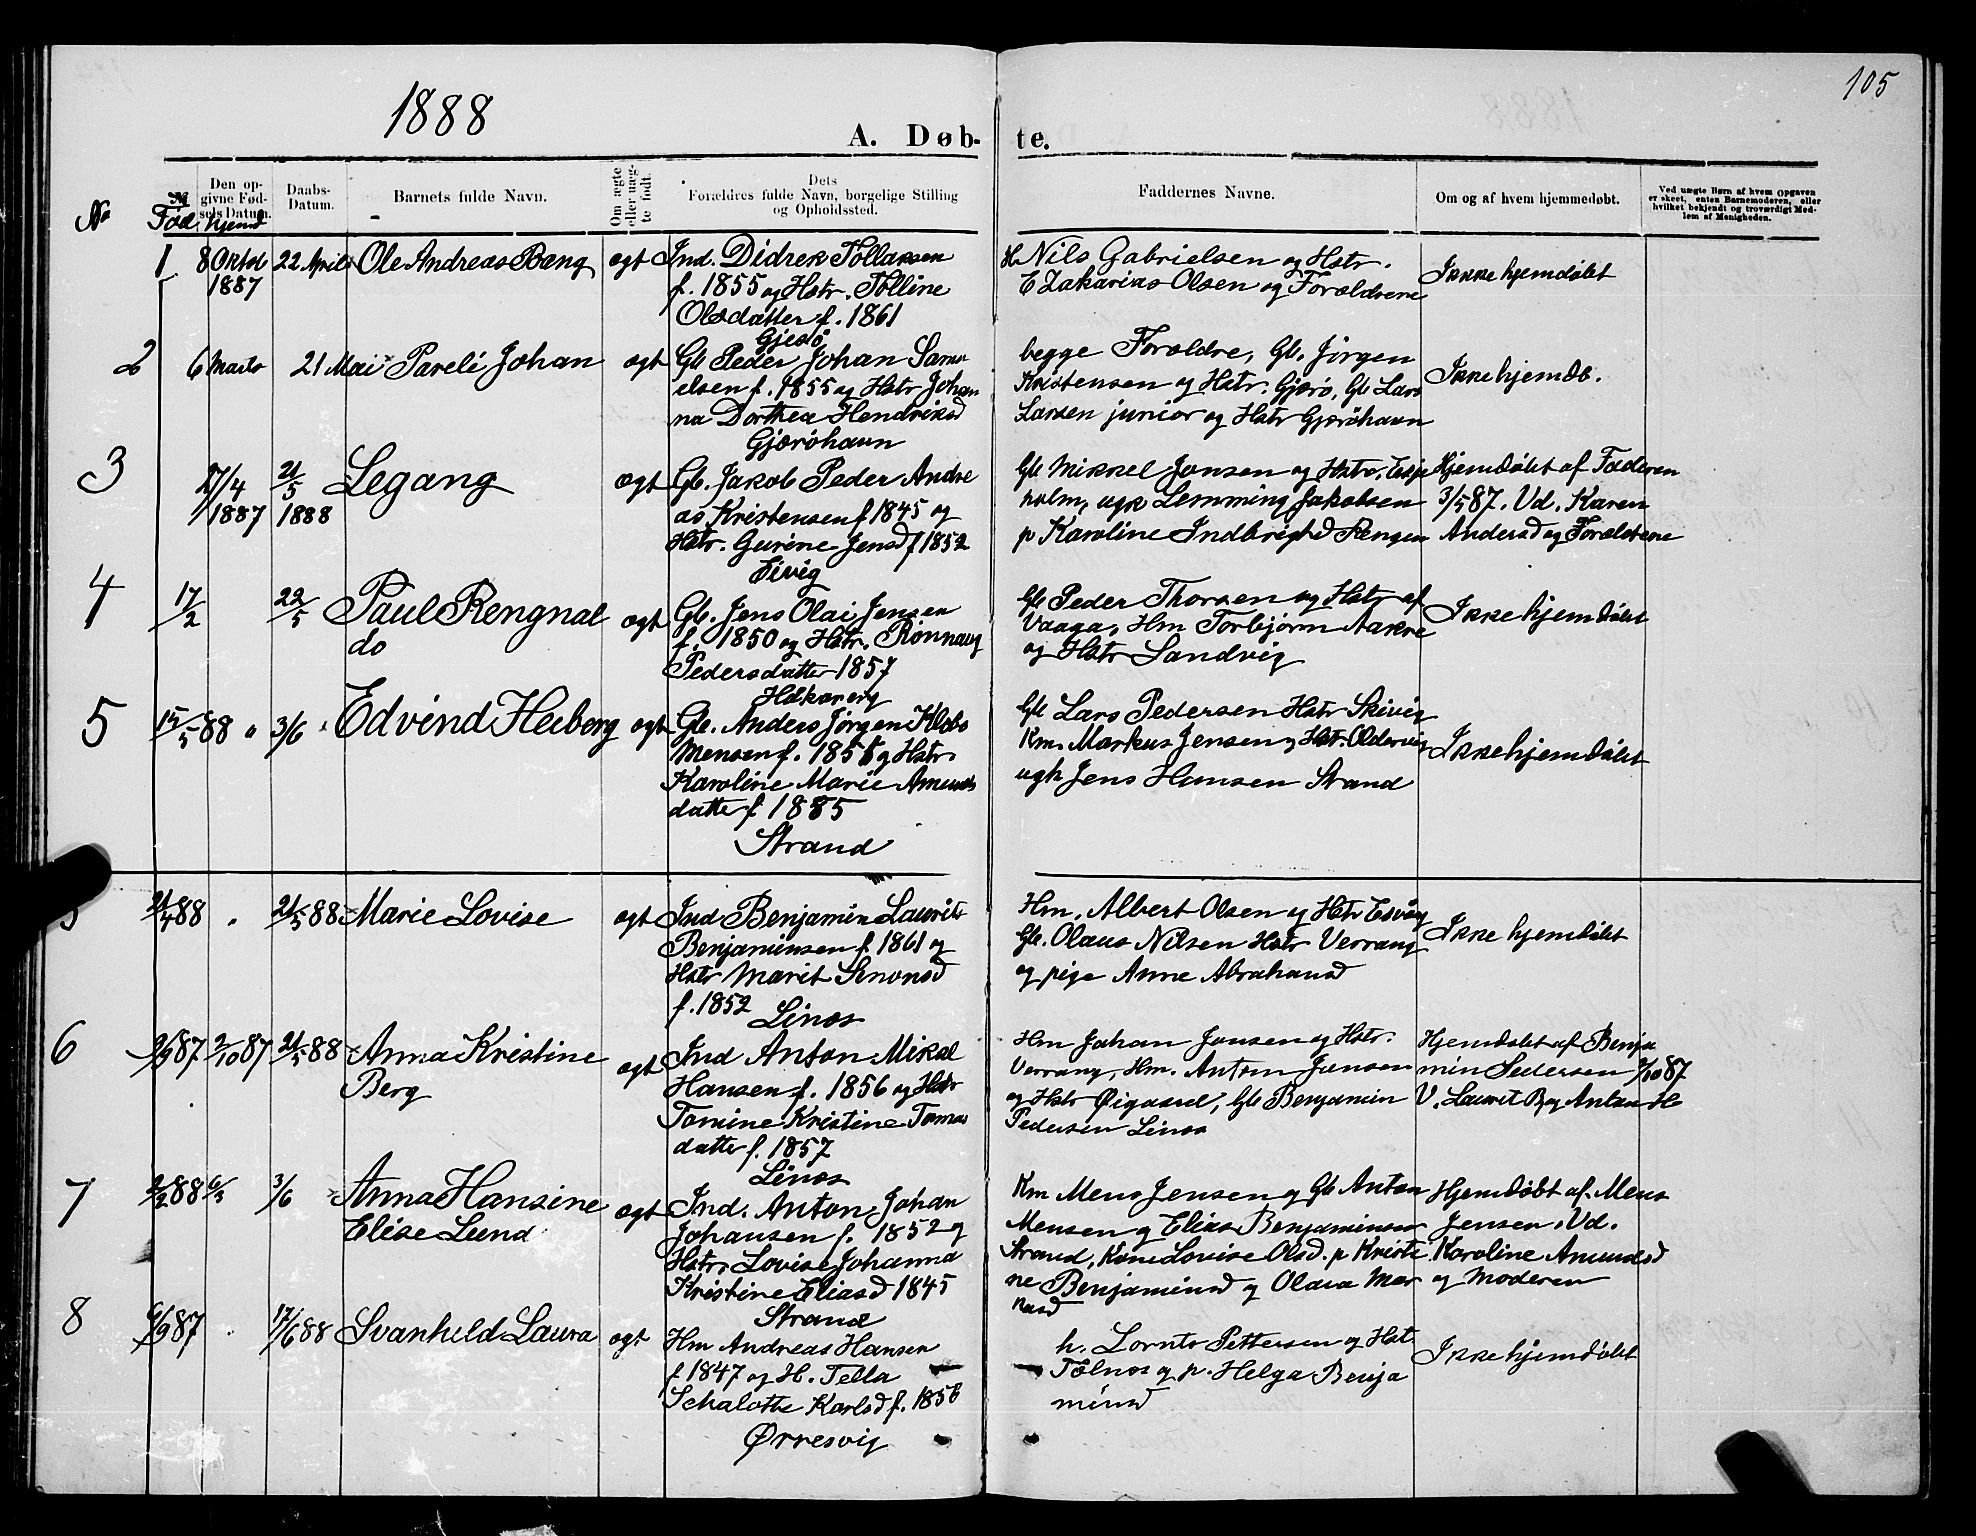 105
1888
A. Døb- te.
No
№ Fød
Den opgivne Fødsels Datum. hjemd
Daabs-Datum.
Barnets fulde Navn.
Om ægte eller uægte født.
Dets Forældres fulde Navn, borgelige Stilling og Opholdssted.
Faddernes Navne.
Om og af hvem hjemmedøbt.
Ved uægte Børn af hvem Opgaven er skeet, enten Barnemoderen, eller hvilket bekjendt og troværdigt Medlem af Menigheden.
1 8 Oktob 1887 22 April Ole Andreas Bang ægt
Ind. Didrek Tollaksen
f. 1855 og Hstr. Tolline
Olsdatter f. 1861
Gjesø
Nils Gabrielsen og Hstr.
E Zakarias Olsen og Forældrene
Ikke hjemdøbt
2 6 Marts 21 Mai Pareli Johan ægt
Gb Peder Johan Samu
elsen f. 1855 og Hstr Johan
na Dorthea Hendriksd
Gjærøhavn
begge Forældre, Gb. Jørgen
Kristensen og Hstr. Gjærø, Gb Lars
Larsen junior og Hstr Gjærøhavn
Ikke hjemdb.
3 17/4 1887 21/5 1888 Legang ægt
Gb. Jakob Peder Andre
as Kristensen f 1845 og
Hstr. Gurine Jensd f 1852
Eivig
Gb Mikkel Jonsen og Hstr.
holm, ugk Lemming Jakobsen
p Karoline Indbrigtsd Rengen
Hjemdøbt af Faderen
3/5 87. Vd. Karen
Andersd og Forældrene
4 17/2 22/5 Paul Rengnal
do
ægt
Gb. Jens Olai Jensen
f. 1850 og Hstr. Rønnaug
Pedersdatter 1857
Gb Peder Thorsen og Hstr af
Vaaga, Hm Torbjørn Aakre
og Hstr Sandvig
Ikke hjemdøbt
5 15/5 88 " 3/6 Edvind Heiberg ægt
Gb. Anders Jørgen Klebo
Mensen f. 1851 og Hstr
Karoline Marie Amunds
datter f. 1885
Strand
Gb Lars Pedersen Hstr Skivig
Km. Markus Jensen og Hstr. Oldervig
ugk Jens Hansen Strand
Ikke hjemdøbt
5 21/4 88 " 21/5 88 Marie Lovise ægt
Ind Benjamin Laurits
Benjaminsen f. 1861 og
Hstr Marit Simonsd
f. 1852 Linos
Hm. Albert Olsen og Hstr Esvig
Gb. Olaus Nilsen Hstr Verrang
og pige Anne Abrahamsd
Ikke hjemdøbt
6 2/9 87 2/10 87 21/5 88 Anna Kristine
Berg
ægt
Ind Anton Mikal
Hansen f. 1856 og Hstr
Tomine Kristine Tomas
datter f. 1857
Linos
Hm Johan Jonsen og Hstr.
Verrang, Hm. Anton Jensen
og Hstr Øigaard, Gb Benjamin
Pedersen Linos
Hjemdøbt af Benja
min Pedersen 2/10 87
V. Laurit B og Anton H
7 2/2 88 6/3 3/6 Anna Hansine
Elise Lund
ægt
Ind. Anton Johan
Johansen f. 1852 og
Hstr. Lovise Johanna
Kristine Eliasd 1845
Strand
Km Mens Jensen og Gb Anton
Mensen og Elias Benjaminsen
Strand, Kone Lovise Olsd. p Kristi
ne Benjaminsd og Olava Mar
kusd
Hjemdøbt af. Mens
Jensen. Vd.
Karoline Amundsd
og Moderen
8 6/9 87 " 17/6 88 Svanhild Laura ægt
Hm Andreas Hansen
f 1847 og H. Tella
Schalotte Karlsd f. 1856
Ørresvig
h. Lornts Pettersen og Hst
Tølnos og p. Helga Benja
minsd
Ikke hjemdøbt